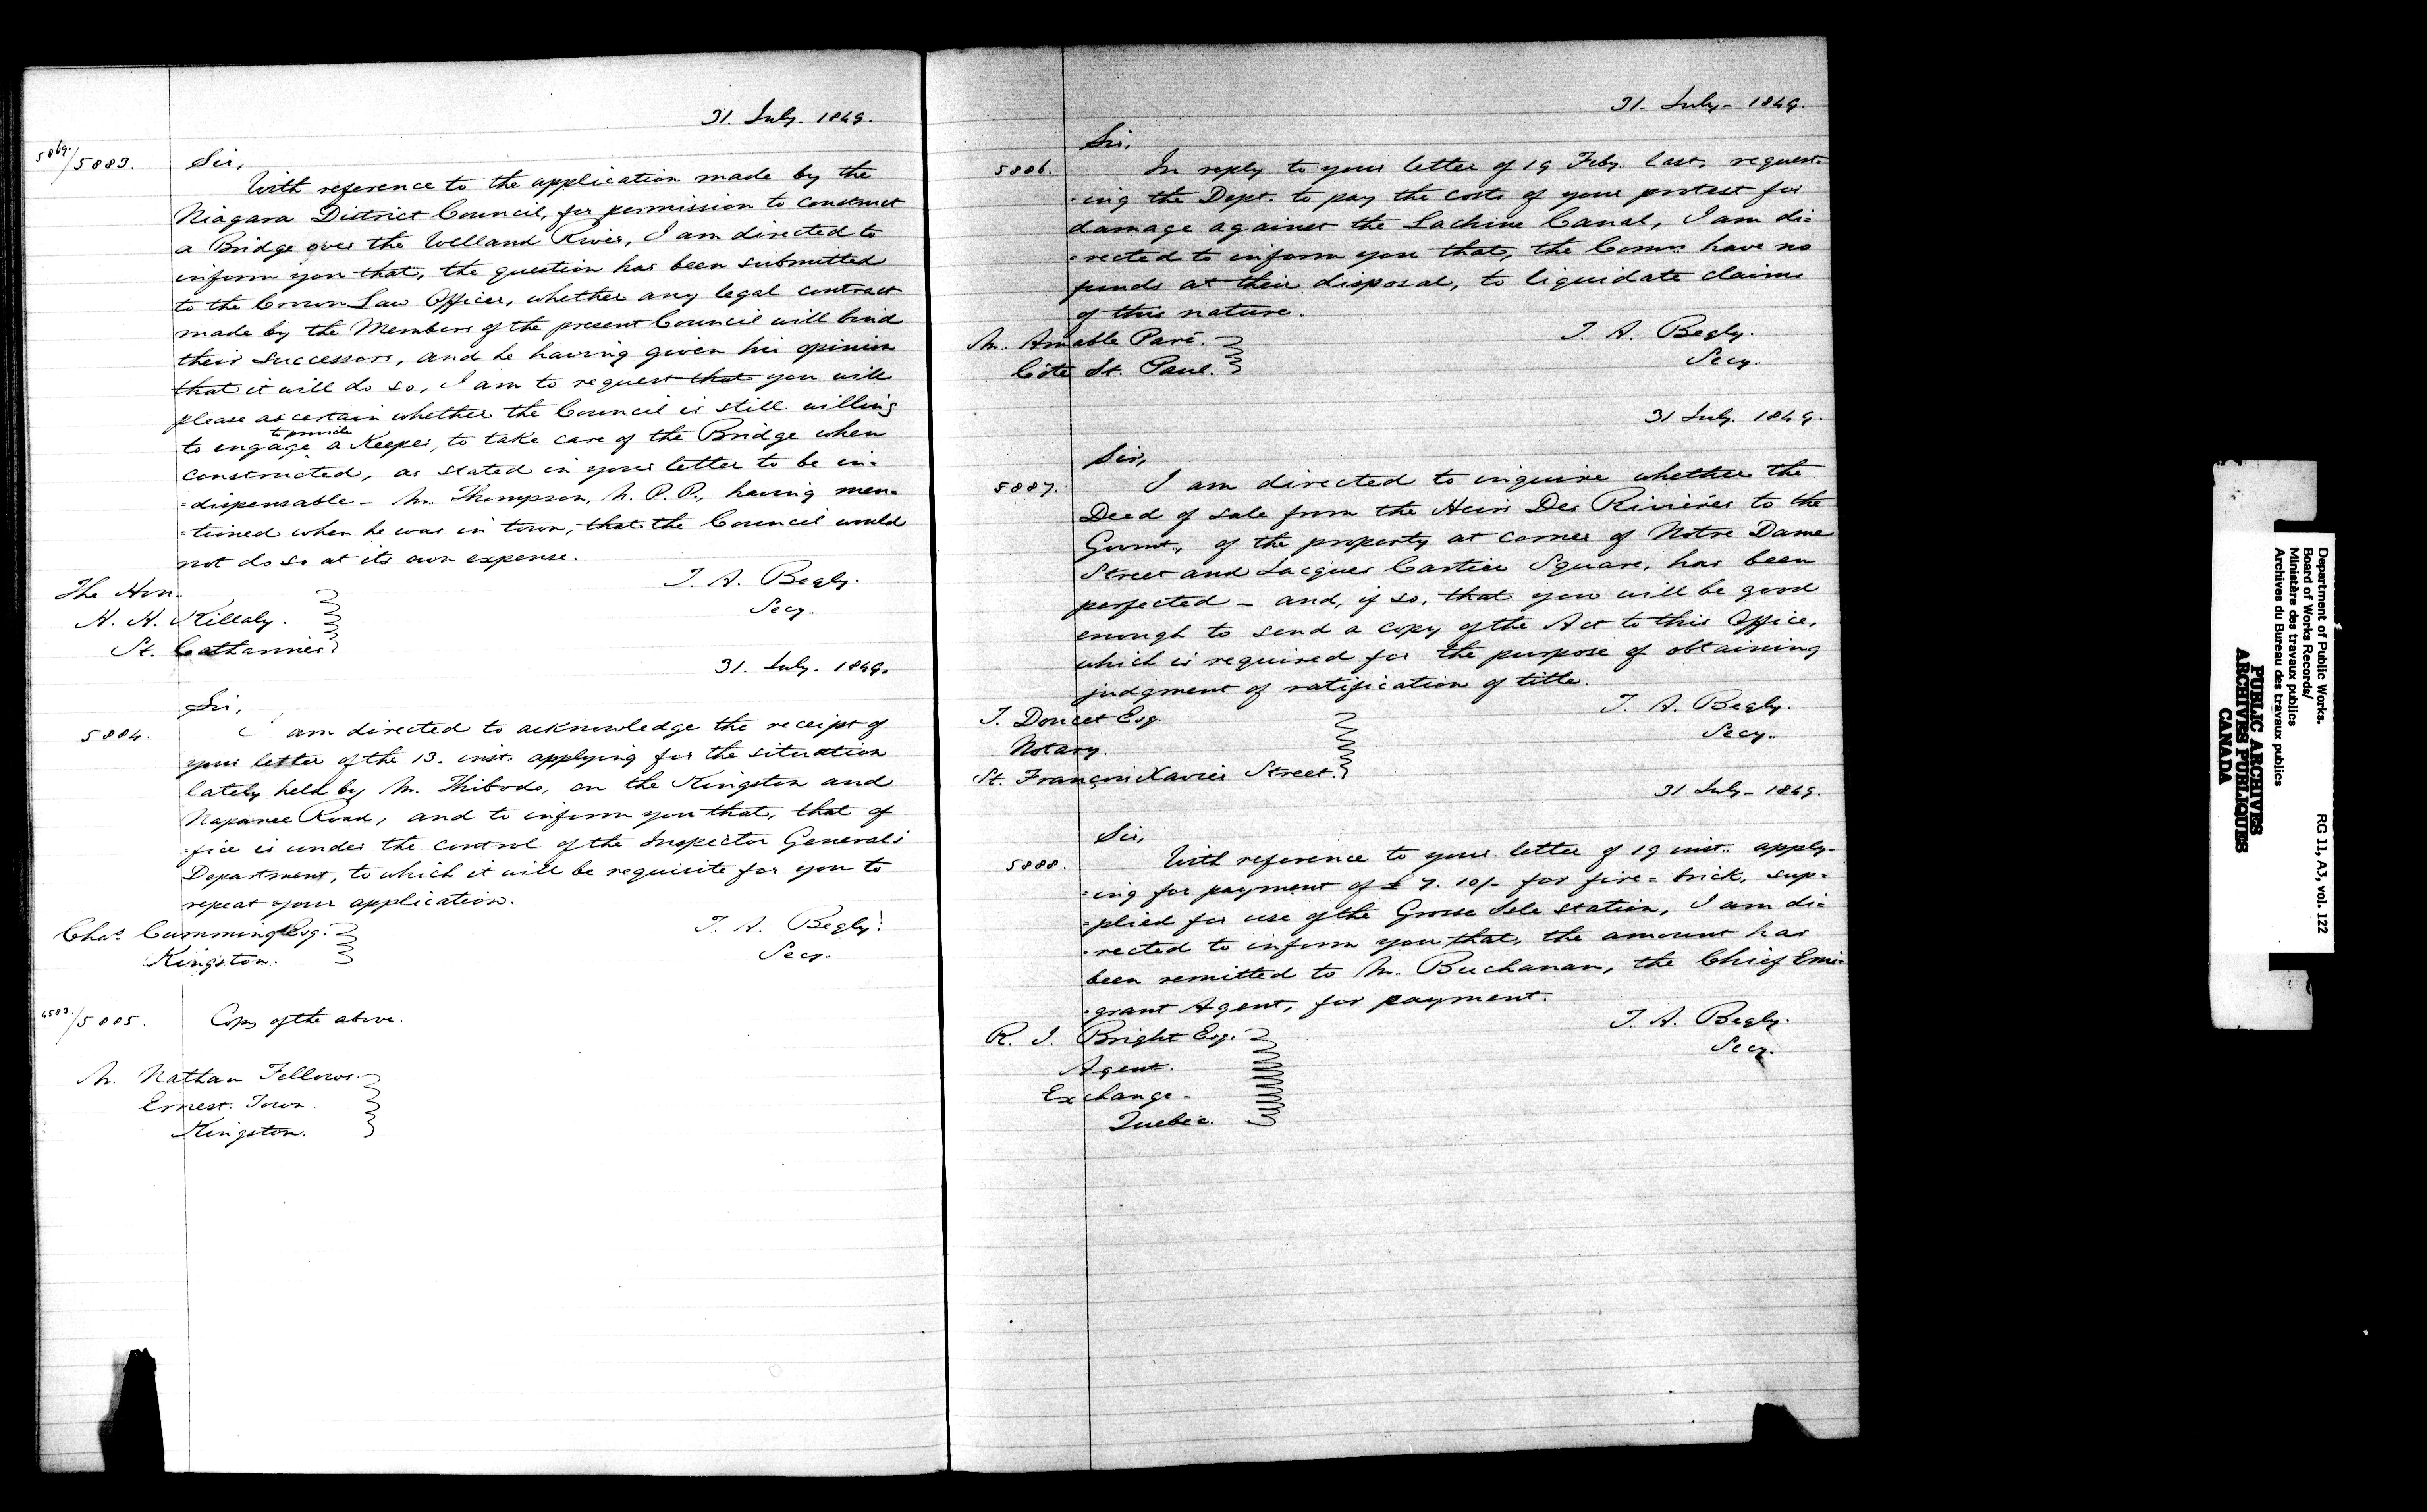 31. July. 1849.
5869./5883.
Sir,
With reference to the application made by the
Niagara District Council, for permission to construct
a Bridge over the Welland River, I am directed to
inform you that, the question has been submitted
to the Crown Law Officer, whether any legal contract
made by the Members of the present Council will bind
their successors, and he having given his opinion
that it will do so, I am to request that you will
please ascertain whether the Council is still willing
to provide
to engage a Keeper, to take care of the Bridge when
constructed, as stated in your letter to be in-
=dispensable - Mr. Thompson, M. P. P., having men-
=tioned when he was in town, that the Council would
not do so at its own expense.
T. A. Begly.
Secy.
The Hon.
H. H. Killaly.
St. Catharines
31. July. 1849.
Sir,
5884.
I am directed to acknowledge the receipt of
your letter of the 13. inst. applying for the situation
lately held by Mr. Thibodo, on the Kingston and
Napanee Road, and to inform you that, that of
=fice is under the control of the Inspector General's
Department, to which it will be requisite for you to
repeat your application.
T. A. Begly.
Secy.
Chas. Cumming Esq.
Kingston.
4583./5885.
Copy of the above.
Mr. Nathan Fellows.
Ernest. Town.
Kingston.
31. July - 1849.
Sir,
5886.
In reply to your letter of 19 Feby. last, request-
=ing the Dept. to pay the costs of your protest for
damage against the Lachine Canal, I am di=
=rected to inform you that, the Comrs. have no
funds at their disposal, to liquidate claims
of this nature.
T. A. Begly.
Secy.
Mr. Amable Paré.
Côte St. Paul.
31 July. 1849.
Sir,
5887.
I am directed to inquire whether the
Deed of sale from the Heirs Des Rivières to the
Govmt., of the property at corner of Notre Dame
Street and Jacques Cartier Square, has been
perfected - and, if so, that you will be good
enough to send a copy of the Act to this Office,
which is required for the purpose of obtaining
judgment of ratification of title.
T. A. Begly.
Secy.
T. Doucet Esq.
Notary.
St. François Xavier Street.
31 July - 1849.
Sir,
5888.
With reference to your letter of 19 inst. apply-
=ing for payment of £ 7. 10/- for fire = brick, sup=
=plied for use of the Grosse Isle station, I am di=
=rected to inform you that, the amount has
been remitted to Mr. Buchanan, the Chief Emi=
=grant Agent, for payment.
T. A. Begly.
Secy.
R. J. Bright Esq.
Agent.
Exchange -
Quebec.
Department of Public Works.
Board of Works Records/
Ministère des travaux publics
Archives du Bureau des travaux publics
RG 11, A3, vol. 122
PUBLIC ARCHIVES
ARCHIVES PUBLIQUES
CANADA